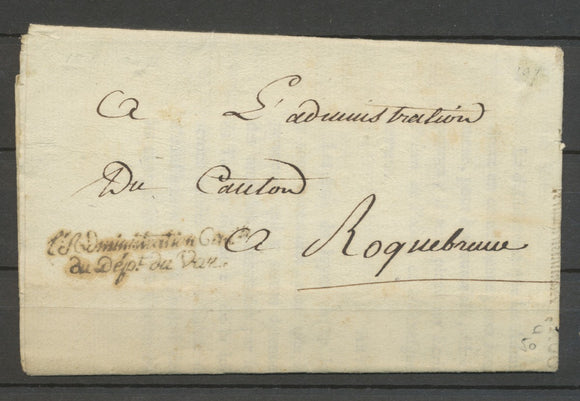 A L'administration
Du Canton
A Roquebrune
l'Administration Cent.le
du Dépt. du Var.